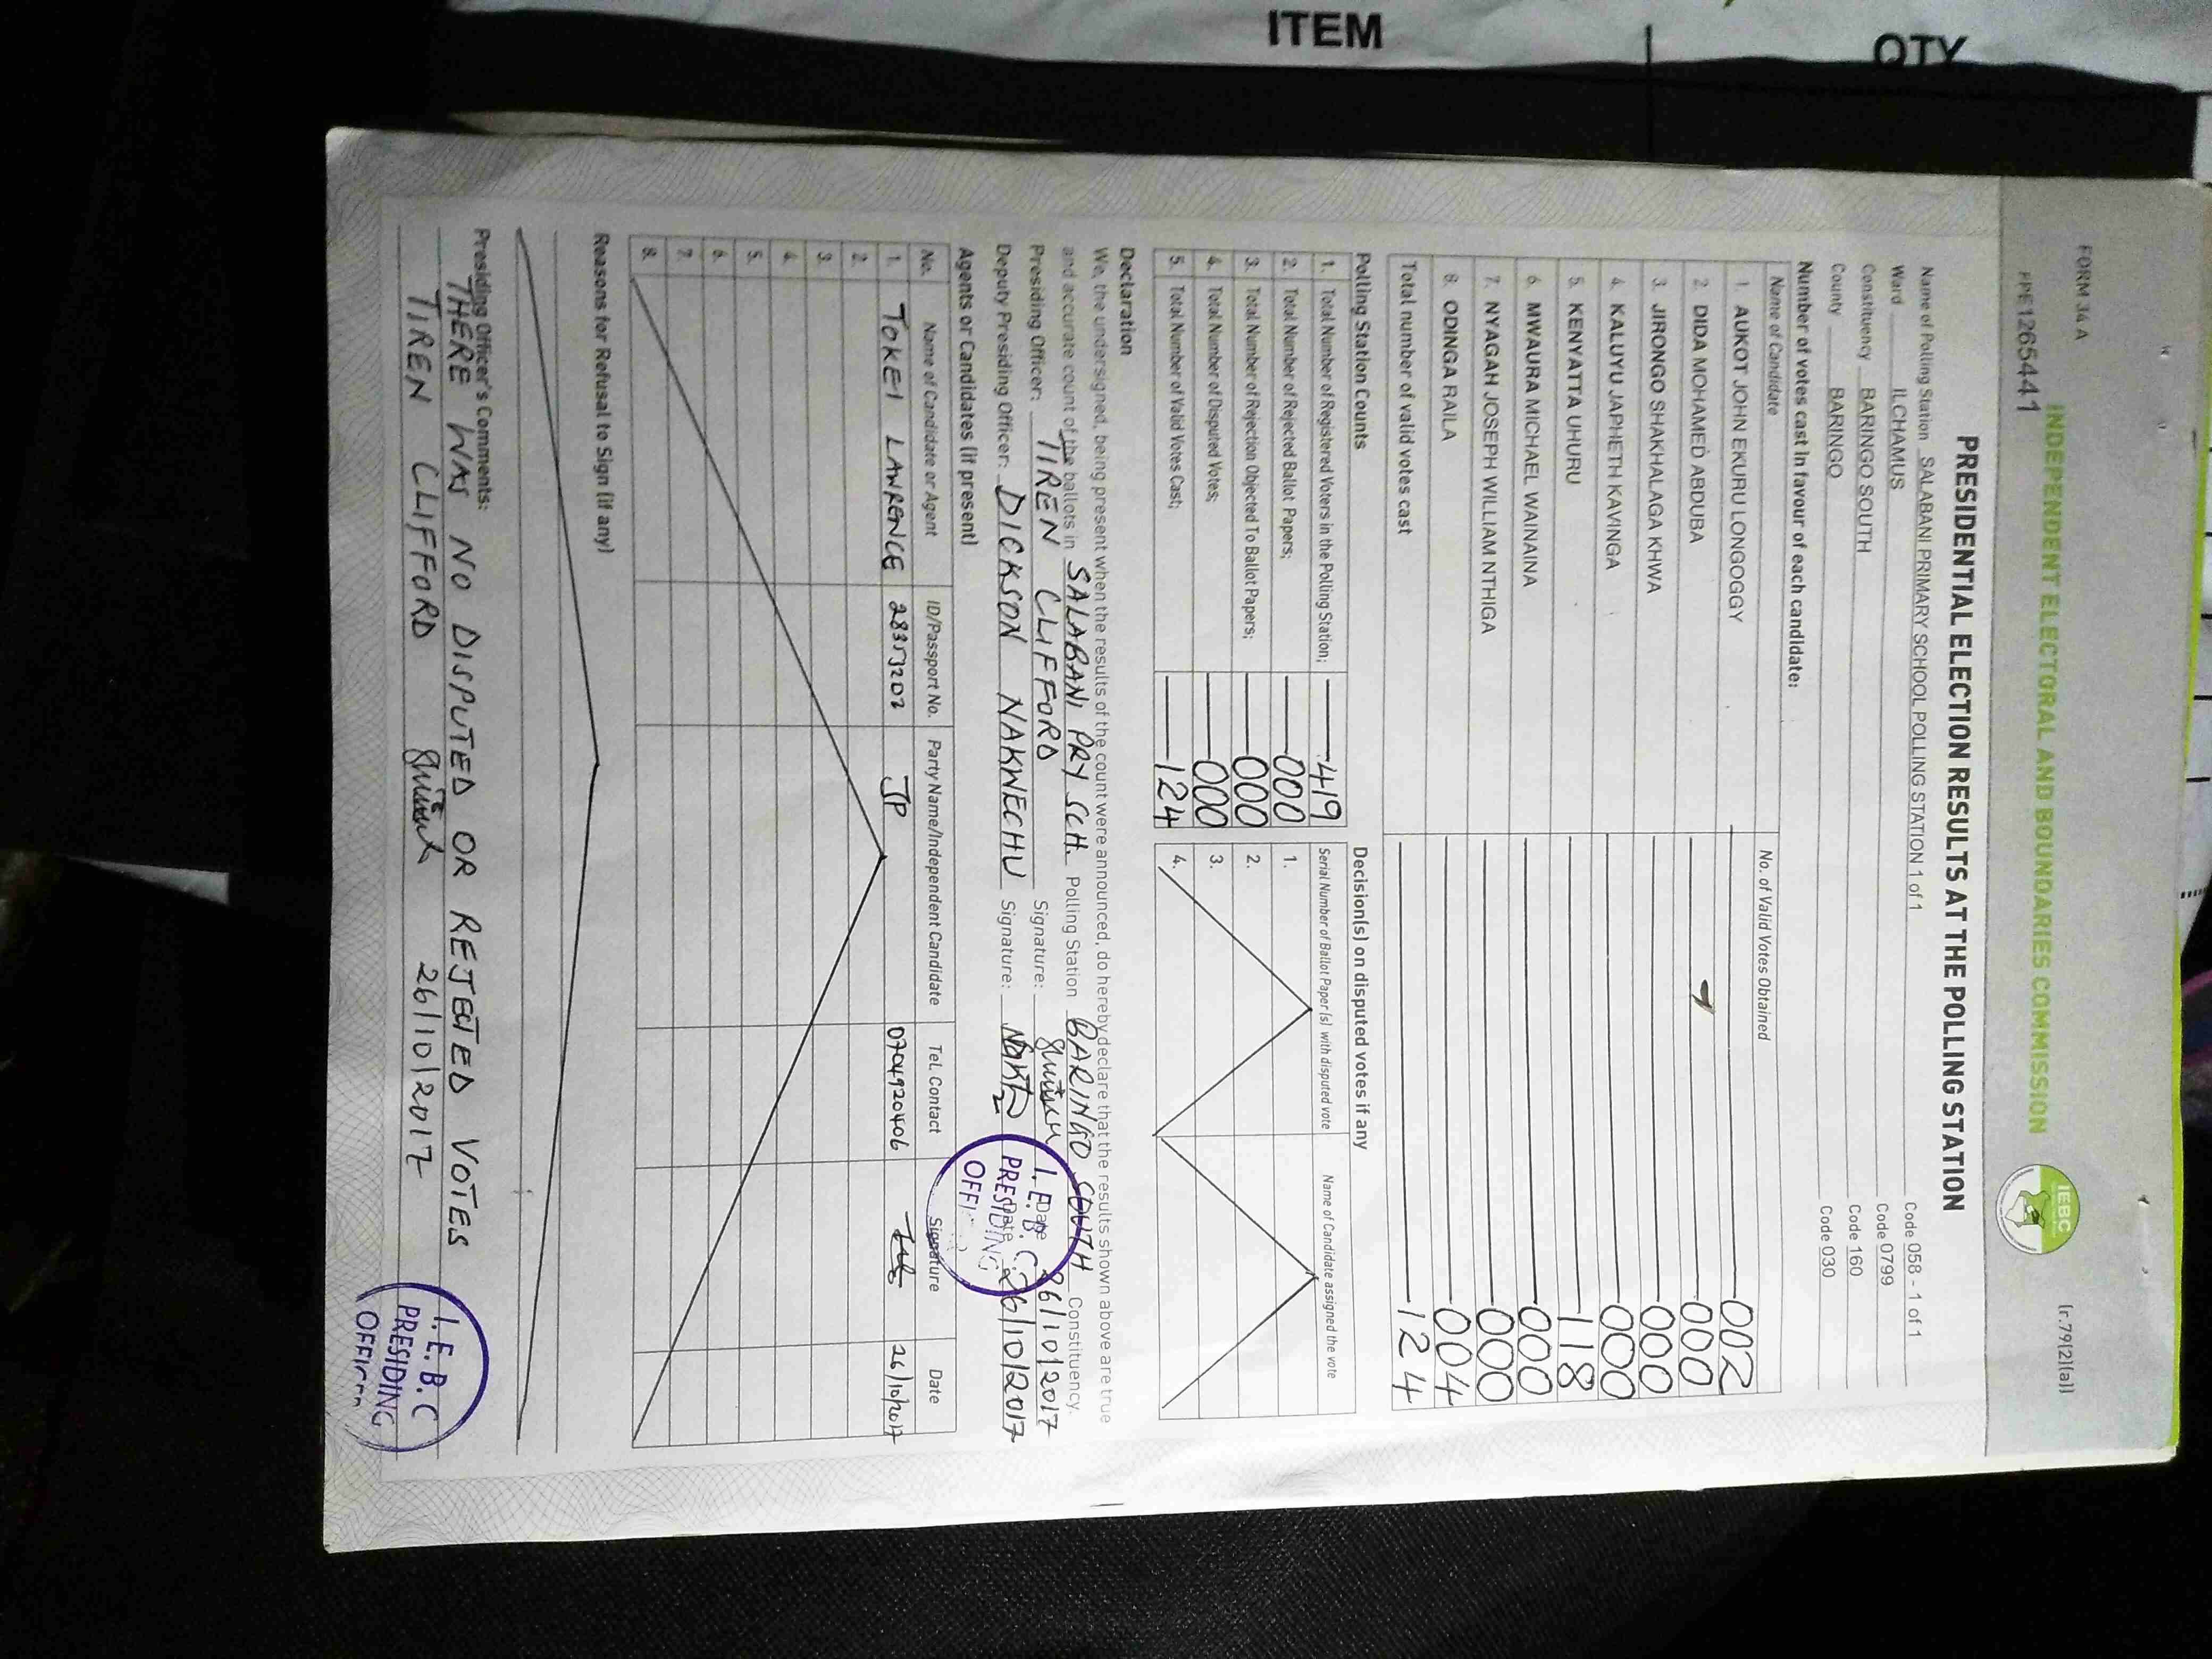 ITEM
QTY
FORM 34 A
(r.79(2)(a))
INDEPENDENT ELECTORAL AND BOUNDARIES COMMISSION
IEBC
PRESIDENTIAL ELECTION RESULTS AT THE POLLING STATION
Name of Polling Station SALABANI PRIMARY SCHOOL POLLING STATION 1 of 1 Code 058 - 1 of 1
Ward ILCHAMUS Code 0799
Constituency BARINGO SOUTH Code 160
County BARINGO Code 030
Number of votes cast in favour of each candidate:
Name of Candidate No. of Valid Votes Obtained
1. AUKOT JOHN EKURU LONGOGGY 002
2. DIDA MOHAMED ABDUBA 000
3. JIRONGO SHAKHALAGA KHWA 000
4. KALUYU JAPHETH KAVINGA 000
5. KENYATTA UHURU 118
6. MWAURA MICHAEL WAINAINA 000
7. NYAGAH JOSEPH WILLIAM NTHIGA 000
8. ODINGA RAILA 004
Total number of valid votes cast 124
Polling Station Counts
1. Total Number of Registered Voters in the Polling Station; 419
2. Total Number of Rejected Ballot Papers; 000
3. Total Number of Rejection Objected To Ballot Papers; 000
4. Total Number of Disputed Votes; 000
5. Total Number of Valid Votes Cast; 124
Decision(s) on disputed votes if any
Serial Number of Ballot Paper (s) with disputed vote Name of Candidate assigned the vote
1.
2.
3.
4.
Declaration
We, the undersigned, being present when the results of the count were announced, do hereby declare that the results shown above are true
and accurate count of the ballots in SALABANI PRY SCH. Polling Station BARINGO SOUTH Constituency.
Presiding Officer: TIREN CLIFFORD Signature: Date 26/10/2017
Deputy Presiding Officer: DICKSON NAKWECHU Signature: Date 26/10/2017
I.E.B.C
PRESIDING
Agents or Candidates (if present)
No. Name of Candidate or Agent ID/Passport No. Party Name/Independent Candidate Tel. Contact Signature Date
1. TOKEI LAWRENCE 28353202 JP 0704920406 26/10/2017
2.
3.
4.
5.
6.
7.
8.
Reasons for Refusal to Sign (if any)
Presiding Officer's Comments:
THERE WAS NO DISPUTED OR REJECTED VOTES
TIREN CLIFFORD 26/10/2017
I.E.B.C
PRESIDING